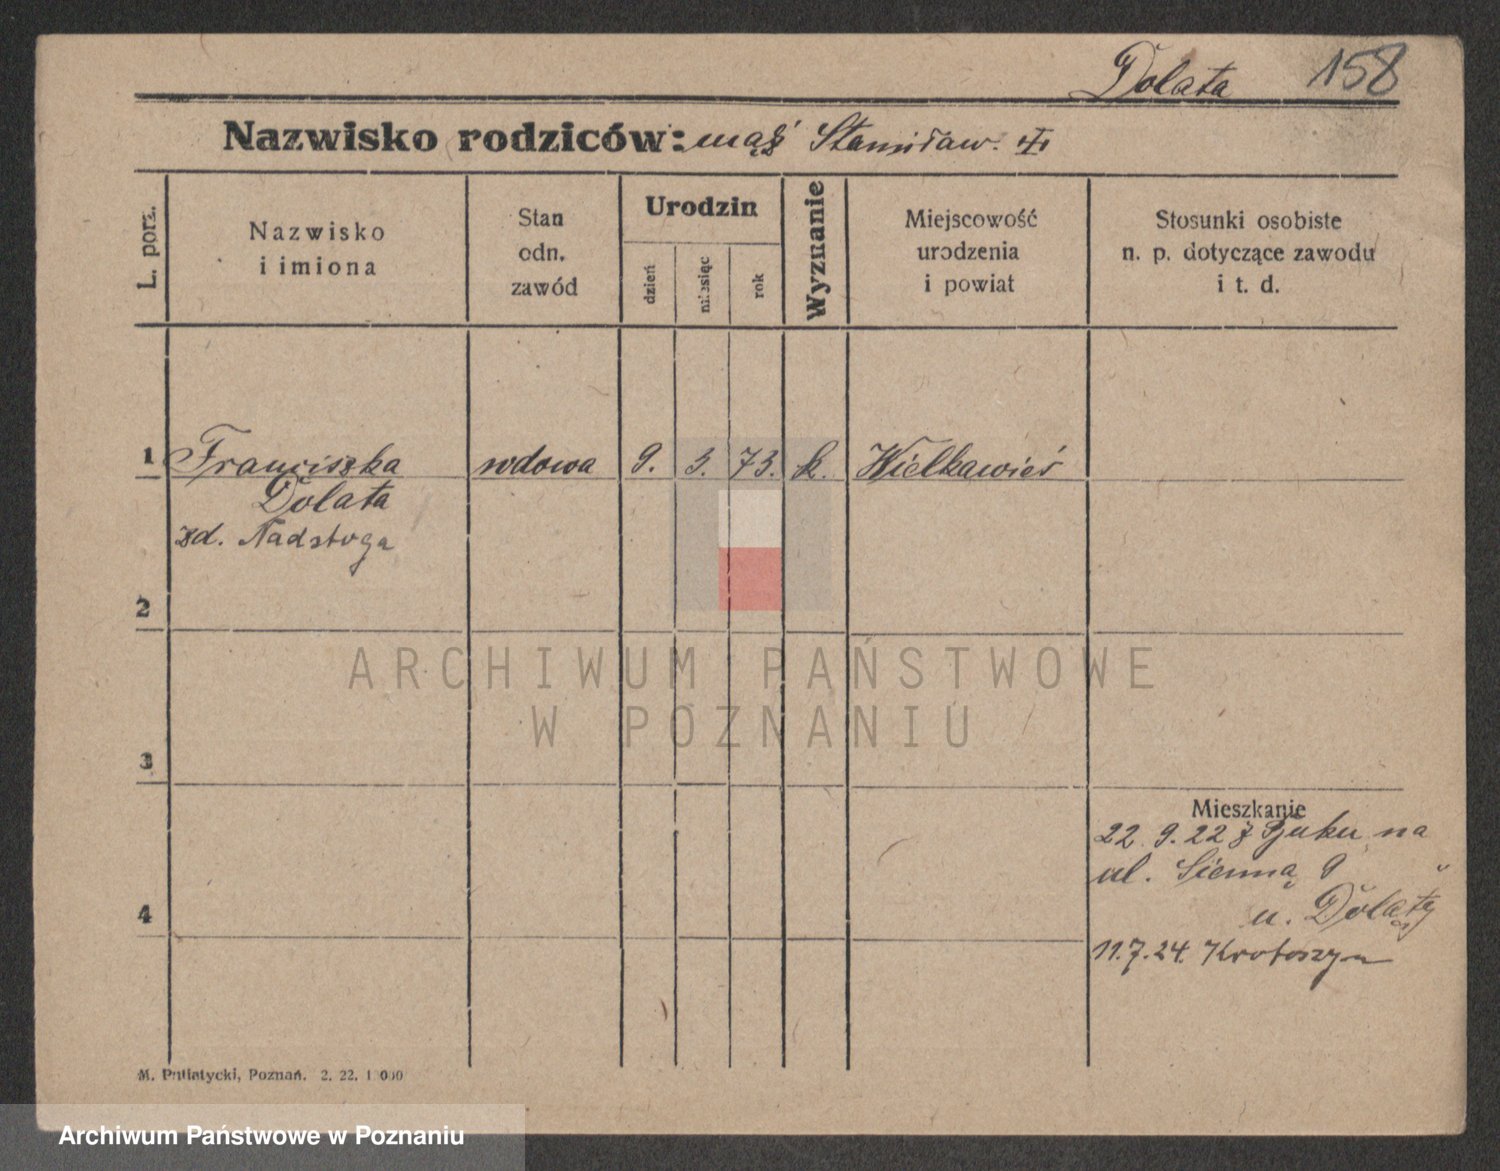 Dolata 158
Nazwisko rodziców: mąż Stanisław.
L. porz.
Nazwisko
i imiona
Stan
odn.
zawód
Urodzin
dzień
miesiąc
rok
Wyznanie
Miejscowość
urodzenia
i powiat
Stosunki osobiste
n. p. dotyczące zawodu
i t. d.
1 Franciszka wdowa 9. 3. 73. k. Wielkawieś
Dolata
zd. Nadstoga
2
3
4
Mieszkanie
22 9. 22 z Buku na
ul. Sienną 9
u. Dolaty
11.7.24. Krotoszyn
M. Putiatycki, Poznań. 2. 22. 1000
ARCHIWUM PAŃSTWOWE
W POZNANIU
Archiwum Państwowe w Poznaniu